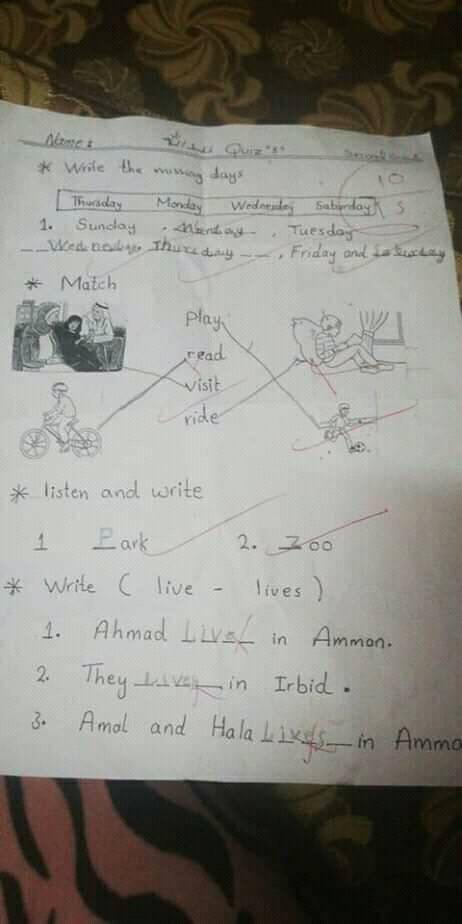 Name: Quiz "3"
* Write the missing days 10
Thursday Monday Wednesday Saturday 5
1. Sunday , Monday , Tuesday
Wednesday, Thursday , Friday and Saturday
* Match
Play
read
visit
ride
* listen and write
1 Park 2. Zoo
* Write ( live - lives )
1. Ahmad Live in Amman.
2. They in Irbid .
3. Amal and Hala in Amma